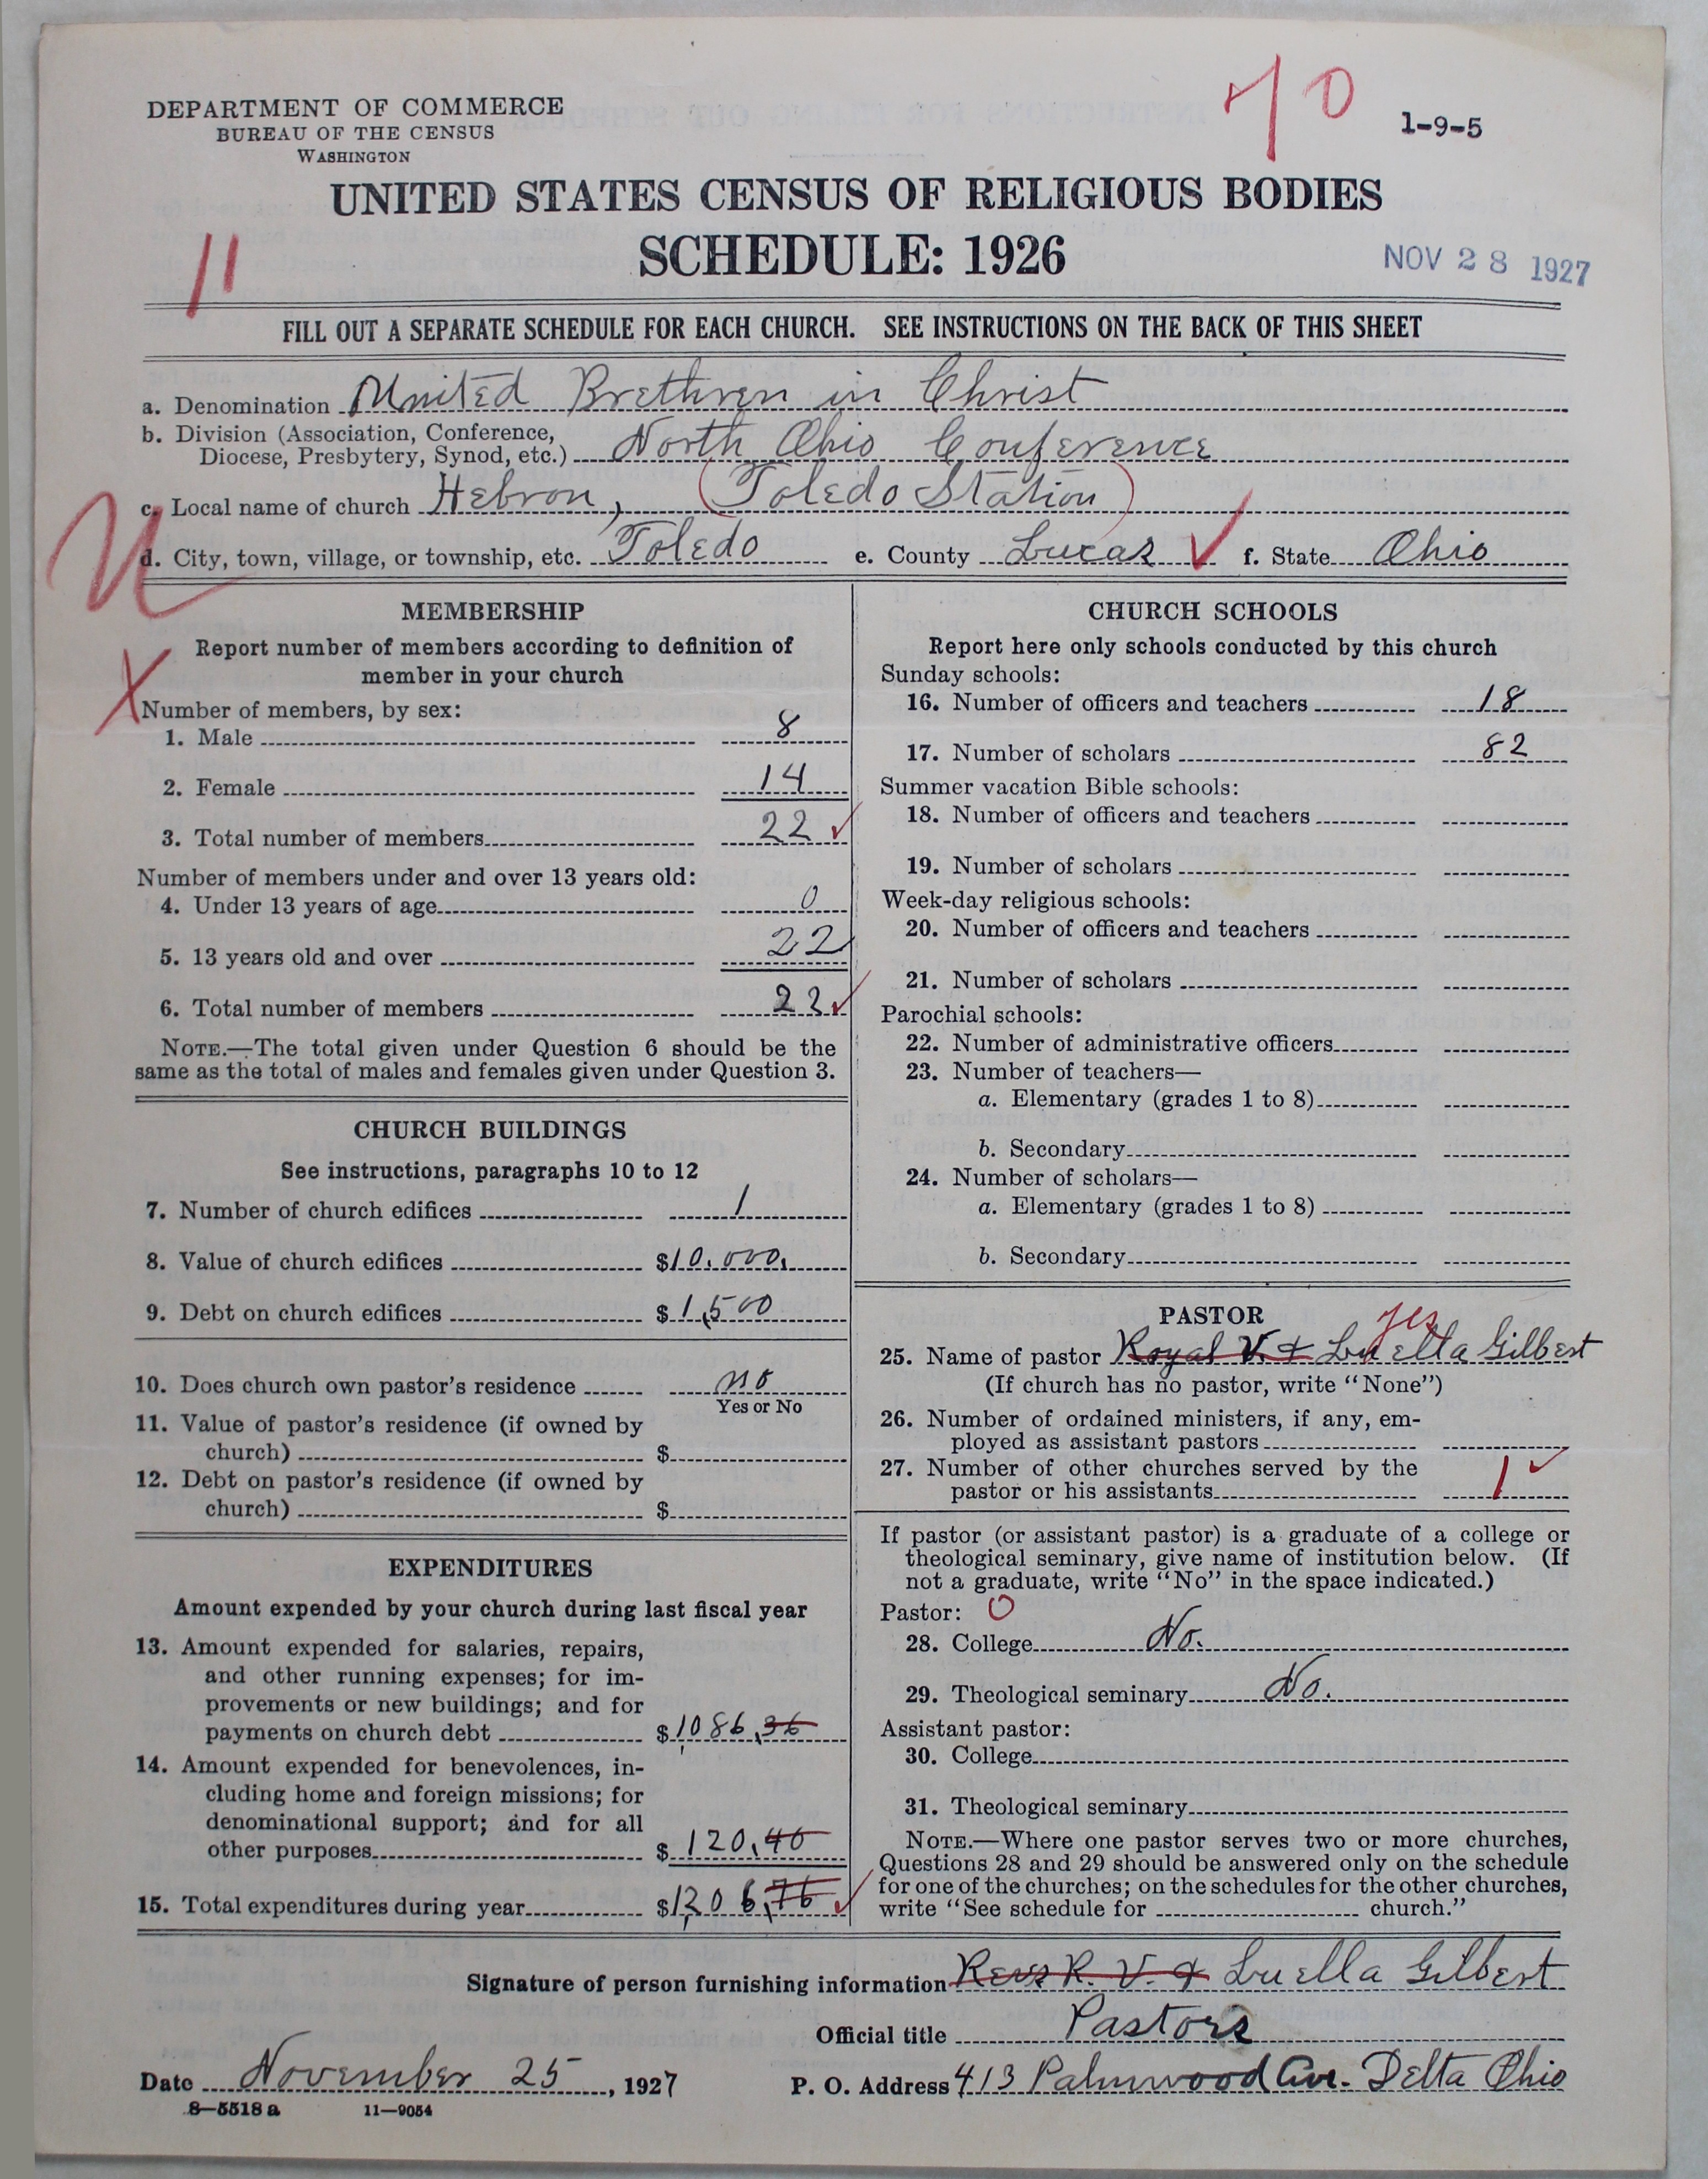 DEPARTMENT OF COMMERCE
BUREAU OF THE CENSUS
WASHINGTON
70
1-9-5
UNITED STATES CENSUS OF RELIGIOUS BODIES
SCHEDULE: 1926
11
NOV 28 1927
FILL OUT A SEPARATE SCHEDULE FOR EACH CHURCH. SEE INSTRUCTIONS ON THE BACK OF THIS SHEET
a. Denomination United Brethren in Christ
b. Division (Association, Conference,
Diocese, Presbytery, Synod, etc.) North Ohio Conference
c. Local name of church Hebron, (Toledo Station)
d. City, town, village, or township, etc. Toledo e. County Lucas ✓ f. State Ohio
MEMBERSHIP
Report number of members according to definition of
member in your church
X
Number of members, by sex:
1. Male 8
2. Female 14
3. Total number of members 22 ✓
Number of members under and over 13 years old:
4. Under 13 years of age 0
5. 13 years old and over 22
6. Total number of members 22 ✓
NOTE.—The total given under Question 6 should be the
same as the total of males and females given under Question 3.
CHURCH BUILDINGS
See instructions, paragraphs 10 to 12
7. Number of church edifices 1
8. Value of church edifices $10,000.
9. Debt on church edifices $1,500
10. Does church own pastor's residence no
Yes or No
11. Value of pastor's residence (if owned by
church) $
12. Debt on pastor's residence (if owned by
church) $
EXPENDITURES
Amount expended by your church during last fiscal year
13. Amount expended for salaries, repairs,
and other running expenses; for im-
provements or new buildings; and for
payments on church debt $1086.36
14. Amount expended for benevolences, in-
cluding home and foreign missions; for
denominational support; and for all
other purposes $120.40
15. Total expenditures during year $1,206.76 ✓
CHURCH SCHOOLS
Report here only schools conducted by this church
Sunday schools:
16. Number of officers and teachers 18
17. Number of scholars 82
Summer vacation Bible schools:
18. Number of officers and teachers
19. Number of scholars
Week-day religious schools:
20. Number of officers and teachers
21. Number of scholars
Parochial schools:
22. Number of administrative officers
23. Number of teachers—
a. Elementary (grades 1 to 8)
b. Secondary
24. Number of scholars—
a. Elementary (grades 1 to 8)
b. Secondary
PASTOR
yes
25. Name of pastor Royal V. & Luella Gilbert
(If church has no pastor, write "None")
26. Number of ordained ministers, if any, em-
ployed as assistant pastors
27. Number of other churches served by the
pastor or his assistants 1 ✓
If pastor (or assistant pastor) is a graduate of a college or
theological seminary, give name of institution below. (If
not a graduate, write "No" in the space indicated.)
Pastor: 0
28. College No.
29. Theological seminary No.
Assistant pastor:
30. College
31. Theological seminary
NOTE.—Where one pastor serves two or more churches,
Questions 28 and 29 should be answered only on the schedule
for one of the churches; on the schedules for the other churches,
write "See schedule for church."
Signature of person furnishing information Revs R. V. & Luella Gilbert
Official title Pastors
Date November 25, 1927 P. O. Address 413 Palmwood Ave. Delta Ohio
8—5518 a 11—9054